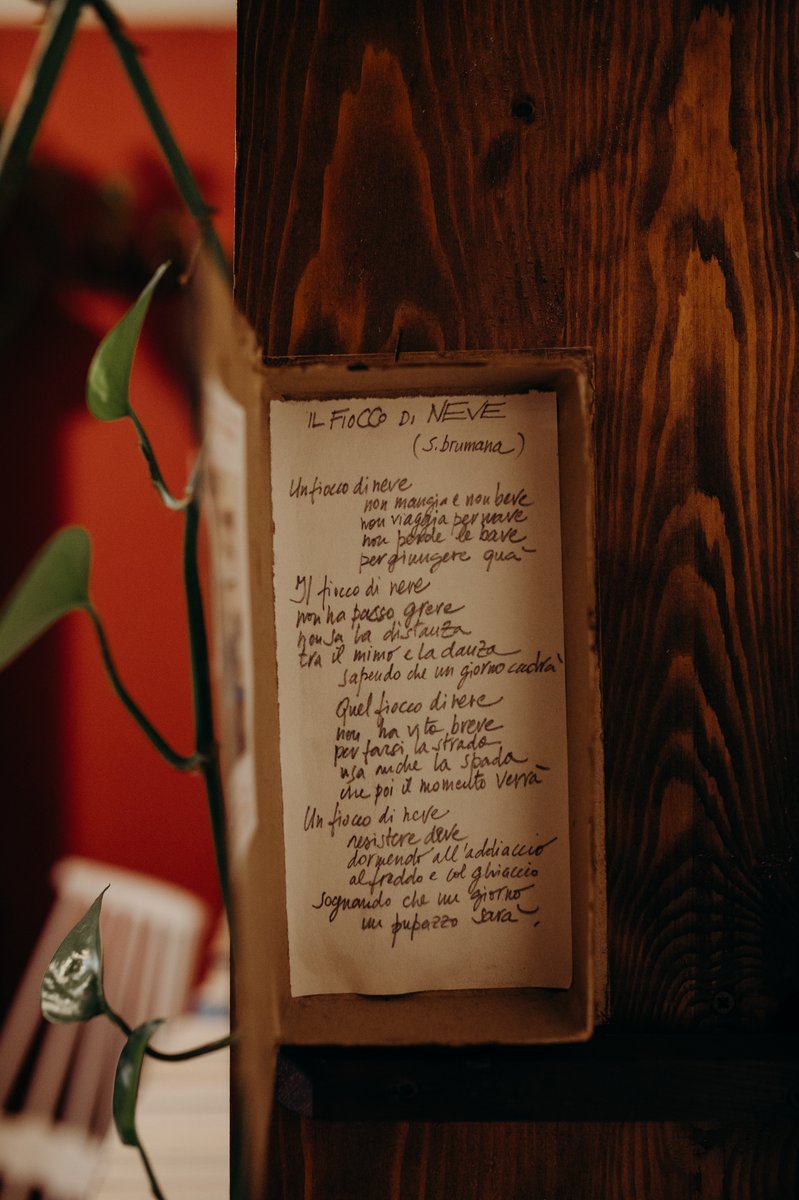 IL FIOCCO DI NEVE
(S. brumana)
Un fiocco di neve
non mangia e non beve
non viaggia per nave
non perde le bave
per giungere quà
Il fiocco di neve
non ha passo greve
non sa la distanza
tra il mimo e la danza
sapendo che un giorno cadrà
Quel fiocco di neve
non ha vita breve
per farsi la strada
usa anche la spada
che poi il momento verrà
Un fiocco di neve
resistere deve
dormendo all'addiaccio
al freddo e col ghiaccio
sognando che un giorno
un pupazzo sarà.